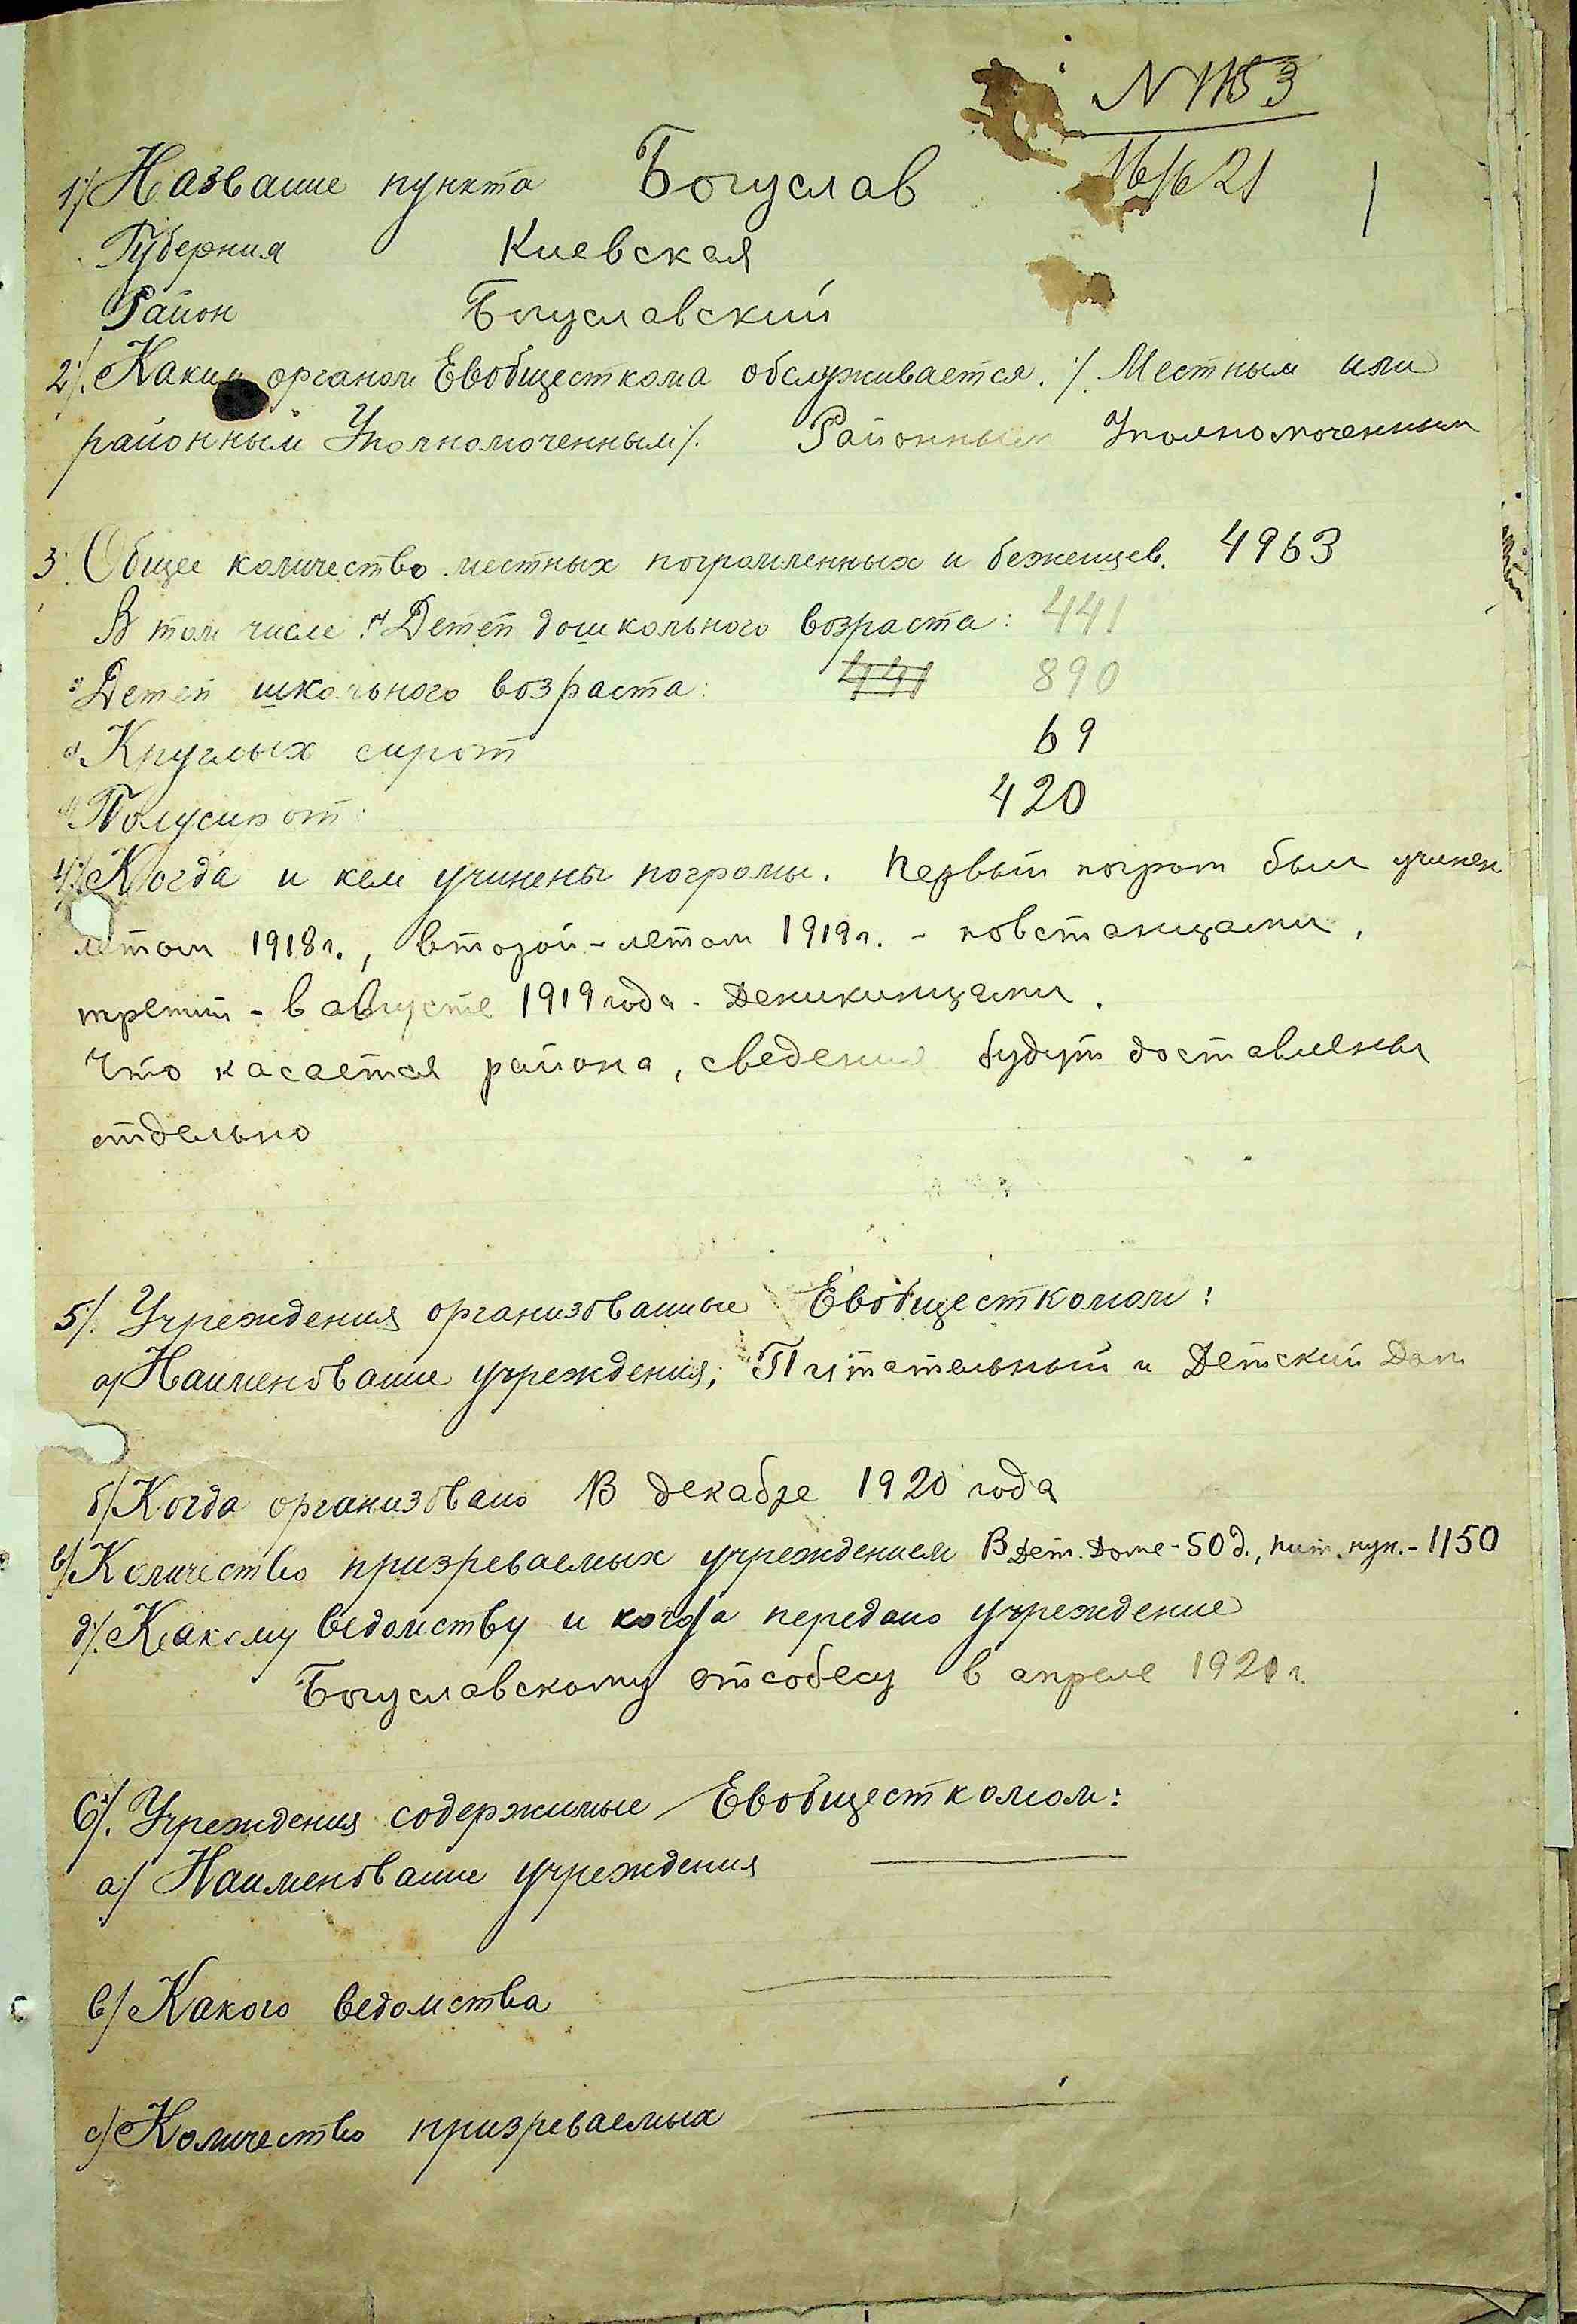 N 1153
16/6 21
1
1/ Название пункта Богуслав
Губерния Киевская
Район Богуславский
2/. Каким органом Евобщесткома обслуживается. /. Местным или
районным Уполномоченным/. Районным Уполномоченным
3. Общее количество местных погромленных и беженцев. 4963
В том числе: Детей дошкольного возраста: 441
Детей школьного возраста: 441 890
Круглых сирот 69
Полусирот: 420
4/. Когда и кем учинены погромы. Первый погром был учинен
летом 1918 г., второй - летом 1919 г. - повстанцами,
третий - в августе 1919 года - Деникинцами.
Что касается района, сведения будут доставлены
отдельно
5/. Учреждения организованные Евобщесткомом:
а/ Наименование учреждения; Питательный и Детский Дом
б/ Когда организовано В декабре 1920 года
в/ Количество призреваемых учреждением В Дет. Доме - 50 д., пит. пун. - 1150
д/. Какому ведомству и когда передано учреждение
Богуславскому отсобесу в апреле 1921 г.
6/. Учреждения содержимые Евобщесткомом:
а/ Наименование учреждения
в/ Какого ведомства
с/ Количество призреваемых